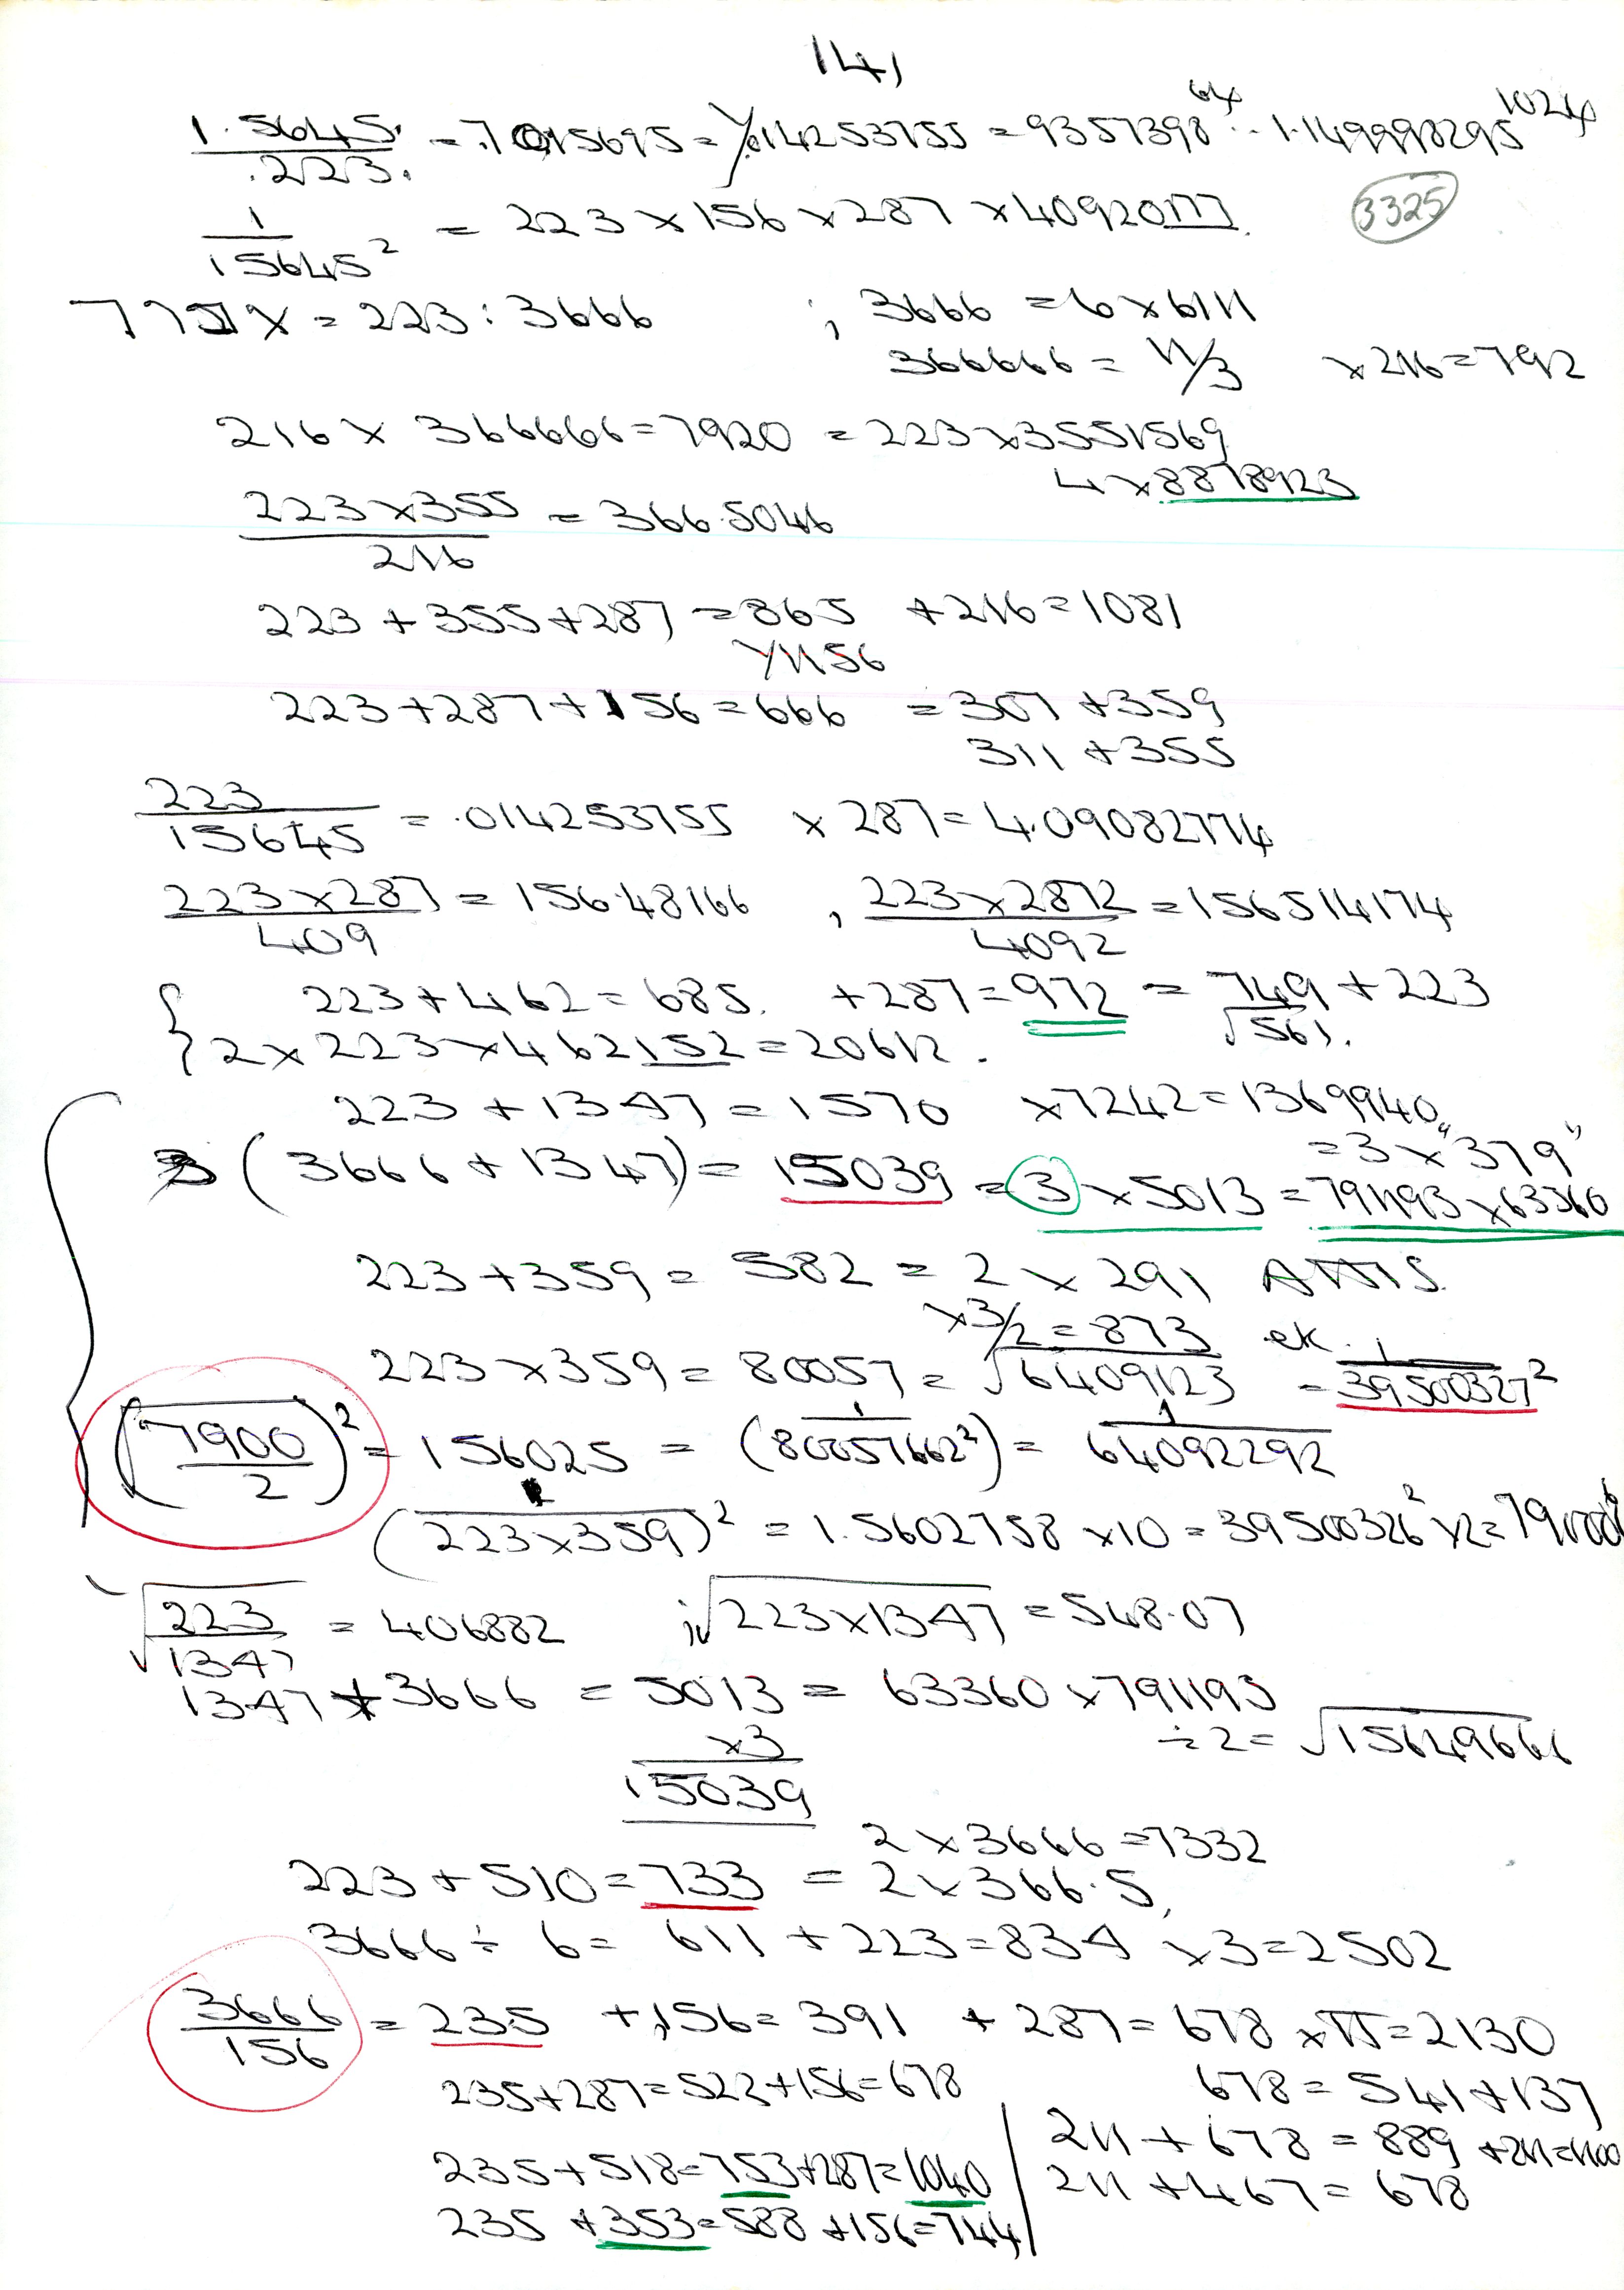 141
1.5645 / .223. = .7015695 = 1/.014253755 = 9357398^64 ·· 1.149998295^1024
3325
1 / 15645² = 223 × 156 × 287 × 4092077
x = 223 : 3666 ; 3666 = 6 × 611
366666 = 11/3 × 216 = 792
216 × 366666 = 7920 = 223 × 3551569
4 × 8878923
223 × 355 / 216 = 366.5046
223 + 355 + 287 = 865 + 216 = 1081
1/1156
223 + 287 + 156 = 666 = 307 + 359
311 + 355
223 / 15645 = .014253755 × 287 = 4.09082774
223 × 287 / 409 = 156.48166 , 223 × 2872 / 4092 = 156514174
223 + 462 = 685. + 287 = 972 = 749 + 223
√561.
2 × 223 × 462152 = 20612.
223 + 1347 = 1570 × 7242 = 1369940
= 3 × "379"
3 (3666 + 1347) = 15039 = 3 × 5013 = 791193 × 63360
223 + 359 = 582 = 2 × 291
× 3/2 = 873 ek.
223 × 359 = 80057 = √6409123 = 1 / 39500327²
(7900 / 2)² = 156025 = (1 / 80057662²) = 1 / 64092292
(1 / 223 × 359)² = 1.5602758 × 10 = 39500326² × 2 =
√223 / 1347 = 406882 ; √223 × 1347 = 548.07
1347 + 3666 = 5013 = 63360 × 791193
× 3 ÷ 2 = √15649666
15039
2 × 3666 = 7332
223 + 510 = 733 = 2 × 366.5
3666 ÷ 6 = 611 + 223 = 834 × 3 = 2502
3666 / 156 = 235 + 156 = 391 + 287 = 678 × π = 2130
235 + 287 = 522 + 156 = 678 678 = 541 + 137
211 + 678 = 889 + 211 = 1100
235 + 518 = 753 + 287 = 1040 211 + 467 = 678
235 + 353 = 588 + 156 = 744